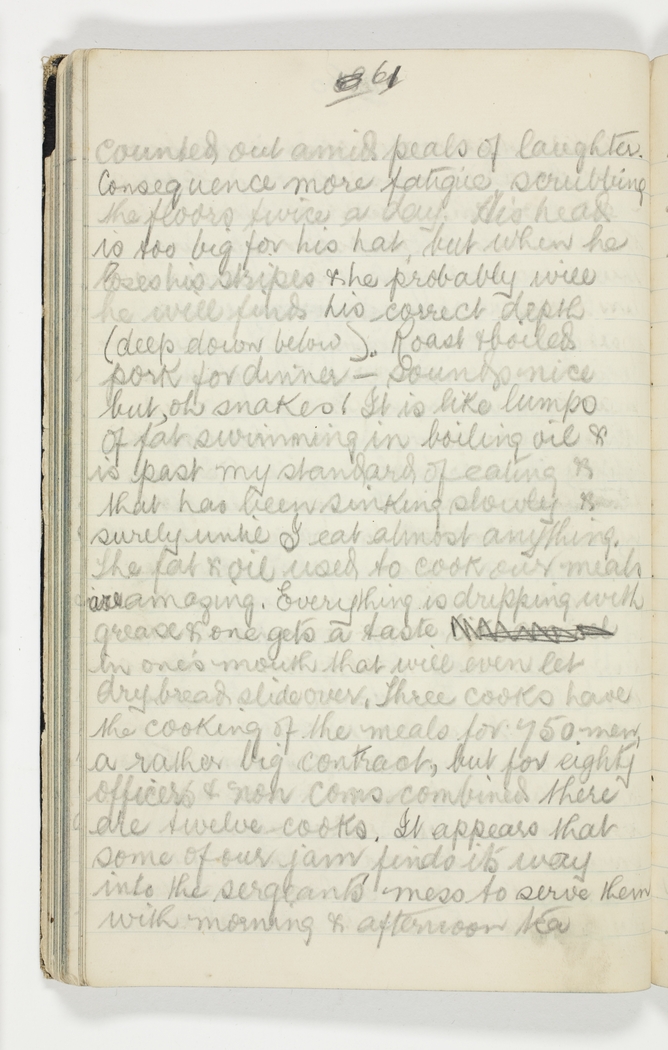 61
counted out amid peals of laughter.
Consequence more fatigue, scrubbing
the floors twice a day. His head
is too big for his hat, but when he
loses his stripes & he probably will
he will find his correct depth
(deep down below). Roast & boiled
pork for dinner – sounds nice
but, oh snakes! It is like lumps
of fat swimming in boiling oil &
is past my standard of eating &
that has been sinking slowly &
surely until I eat almost anything.
The fat & oil used to cook our meals
are amazing. Everything is dripping with
grease & one gets a taste
in one's mouth that will even let
dry bread slide over. Three cooks have
the cooking of the meals for 750 men,
a rather big contract, but for eighty
officers & non coms combined there
are twelve cooks. It appears that
some of our jam finds its way
into the sergeants' mess to serve them
with morning & afternoon tea